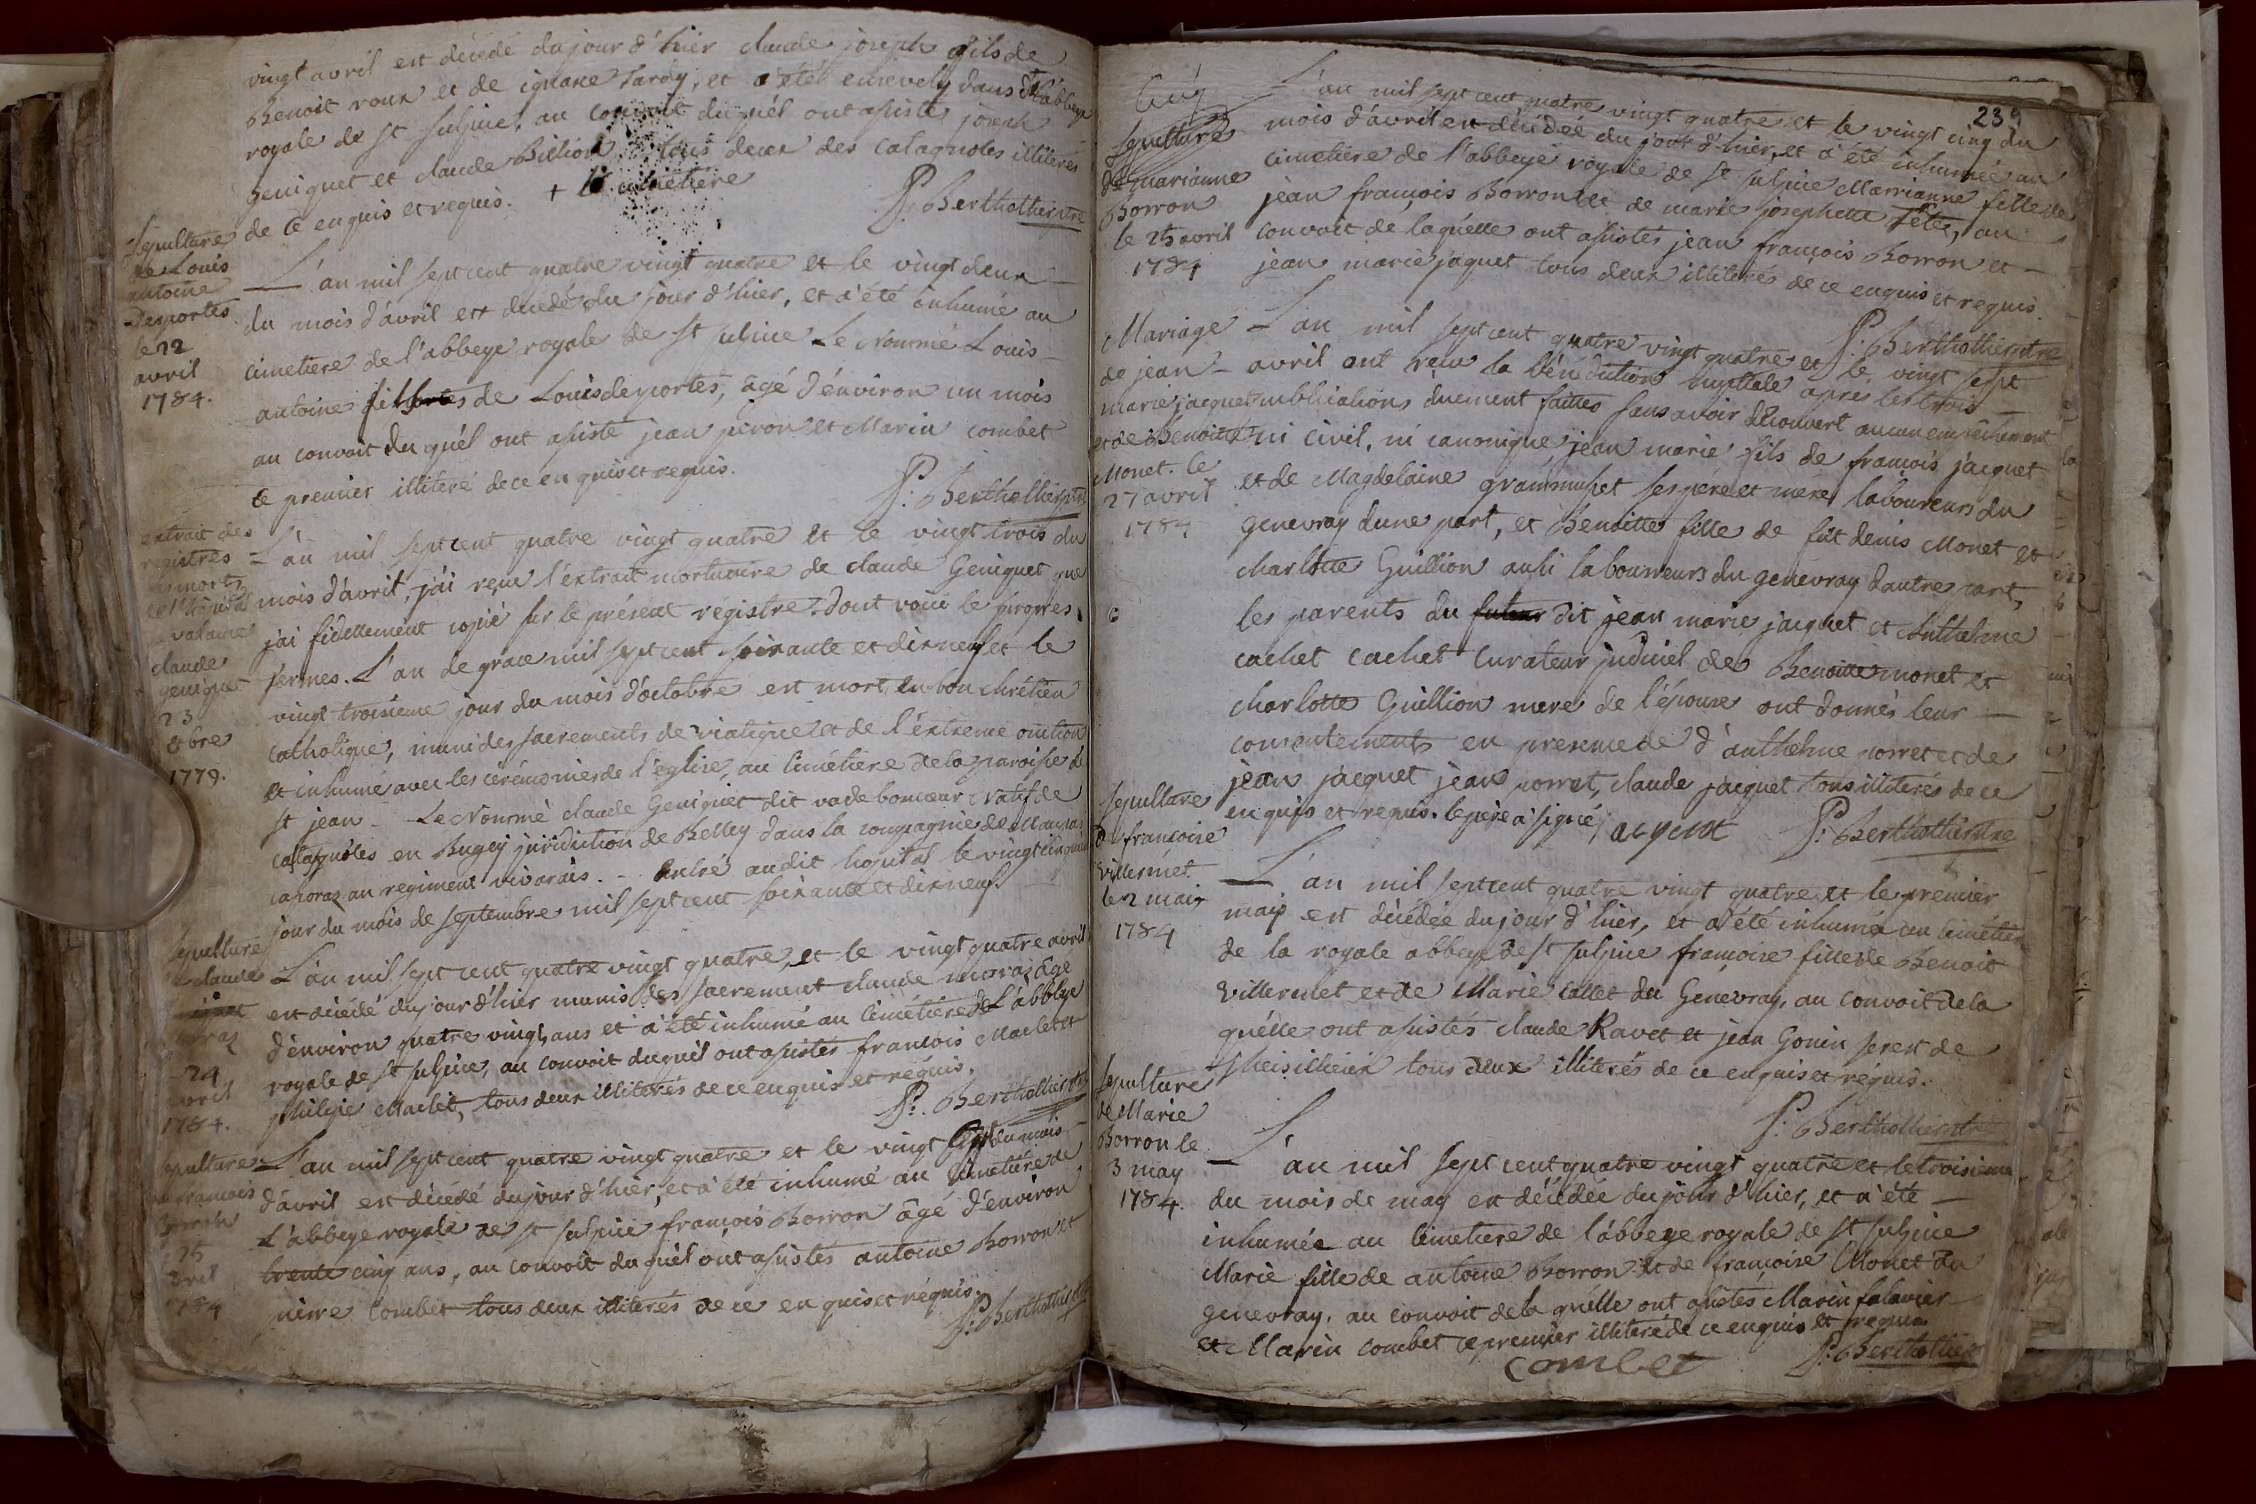 vingt avril est décédé du jour d'hier claude joseph fils de
Benoit roux et de ignace tardy, et a été ensevely dans l'abbeye
royale de st sulpice, au convoit duquél ont assistés joseph
Geniquet et claude Billion tous deux des catagnoles illiterés
de ce enquis et requis. + le cimetière
P: Berthollier ptre
Sepulture
de Louis
antoine
Desportes
le 22
avril
1784.
L'an mil sept cent quatre vingt quatre et le vingt deux
du mois d'avril est decedé du jour d'hier, et a été inhumé au
cimetiere de l'abbeye royale de st sulpice Le Nommé Louis
antoine fils de Louis desportes, âgé d'énviron un mois
au convoit du quél ont assisté jean peron et Marin combet
le premier illiteré de ce en quis et requis.
P: Berthollier ptre
extrait des
registres
mort
claude
geniquet
23
8bre
1779.
L'an mil sept cent quatre vingt quatre et le vingt trois du
mois d'avril, j'ai reçue l'extrait mortuaire de claude Geniquet que
j'ai fidellement copié sur le présent régistre. dont voici le propres
termes. L'an de grace mil sept cent soixante et dixneuf et le
vingt troisiéme jour du mois d'octobre est mort en bon chrétien
catholique, muni des sacrements de viatique et de l'éxtreme onction
et inhumé avec les cérémonies de l'église, au cimétiére de la paroisse de
st jean - Le Nommé claude Geniquet dit vade boncoeur natif de
catagnoles en Bugey juridiction de Belley dans la compagnie de
au regiment vivarais. - entré audit hopital le vingt cinquié
jour du mois de septembre mil sept cent soixante et dixneuf.
sepulture
claude
moraz
24
avril
1784.
L'an mil sept cent quatre vingt quatre, et le vingt quatre avril
est décédé du jour d'hier munis des sacrement claude moraz âgé
d'énviron quatre vingt ans et a été inhumé au cimétiére de L'abbeye
royale de st sulpice, au convoit duquél ont assistés francois Maclet et
philipe Maclet, tous deux illiterés de ce enquis et requis.
P: Berthollier ptre
sepulture
francois
Borron
25
avril
1784
L'an mil sept cent quatre vingt quatre et le vingt du mois
d'avril est décédé du jour d'hier, et a été inhumé au cimetiére de
L'abbeye royale de st sulpice françois Borron âgé d'énviron
trente cinq ans, au convoit du quél ont assistés antoine Borron et
pierre Combet tous deux illiterés de ce en quis et réquis.
P: Berthollier
239
Sepulture
de marianne
Borron
le 25 avril
1784
L'an mil sept cent quatre vingt quatre et le vingt cinq du
mois d'avril est décédée du jour d'hier, et a été inhumée au
cimetiére de l'abbeyé royale de st sulpice Marrianne fille de
jean françois Borron et de marie josephette Tête, au
convoit de laquélle ont assistés jean françois Borron et
jean marie jaquet tous deux illiterés de ce enquis et requis.
P: Berthollier ptre
Mariage
de jean
marie jacquet
et de Benoitte
Monet. le
27 avril
1784
L'an mil sept cent quatre vingt quatre et le vingt sept
avril ont reçu la bénédiction nuptiale apres les trois
publications duement faittes sans avoir découvert aucun empêchement
ni civil, ni canonique, jean marie fils de françois jacquet
et de Magdelaine ses pére et mére laboureurs du
genevray d'une part, et Benoitte fille de fût denis Monet et
charlotte Guillion aussi laboureurs du genevray d'autre part,
les parents du futeur dit jean marie jacquet et Anthelme
cachet cachet curateur judiciel de Benoitte monet et
charlotte Guillion mere de l'épouse ont donnés leur
consentements en presence de d'anthelme porret et de
jean jacquet jean porret, claude jacquet tous illiterés de ce
enquis et requis. le père a signé,
P: Berthollier ptre
Sepulture
de françoise
villermet
le 2 mais
1784
L'an mil sept cent quatre vingt quatre et le premier
mais est décédée du jour d'hier, et a été inhumée au cimétiére
de la royale abbeye de st sulpice françoise fille de Benoit
villermet et de Marie collet du Genevray, au convoit de la
quélle ont assistés claude Ravet et jean Gonin serex de
tous deux illiterés de ce enquis et réquis.
P: Berthollier ptre
Sepulture
de Marie
Borron le
3 may
1784.
L'an mil sept cent quatre vingt quatre et le troisieme
du mois de may est décédée du jour d'hier, et a été
inhumée au cimetiere de l'abbeye royale de st sulpice
Marie fille de antoine Borron et de françoise Monet du
genevray, au convoit de la quélle ont assistés Marin falavier
et Marin combet ce premier illiteré de ce enquis et requis.
combet
P: Berthollier